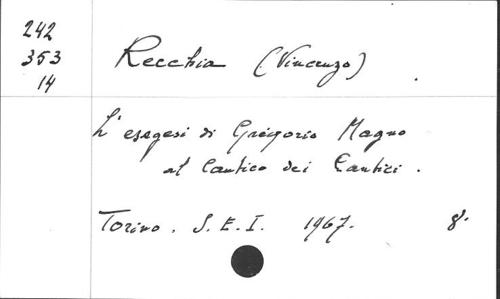 242
353
14
Recchia (Vincenzo)
L'esegesi di Gregorio Magno
al Cantico dei Cantici.
Torino. S. E. I. 1967. 8.